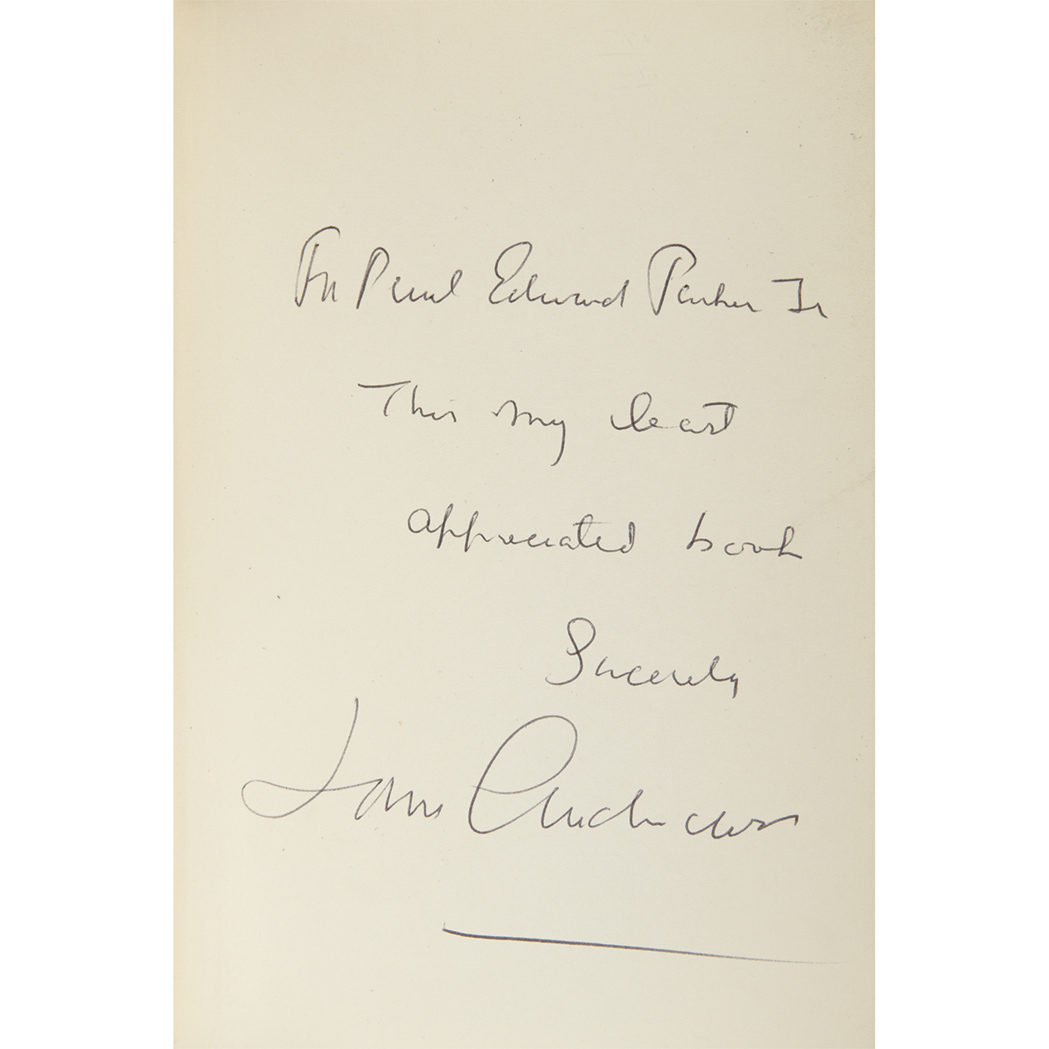 For Paul Edward Parker Jr
This my least
appreciated book
Sincerely
Louis Auchincloss